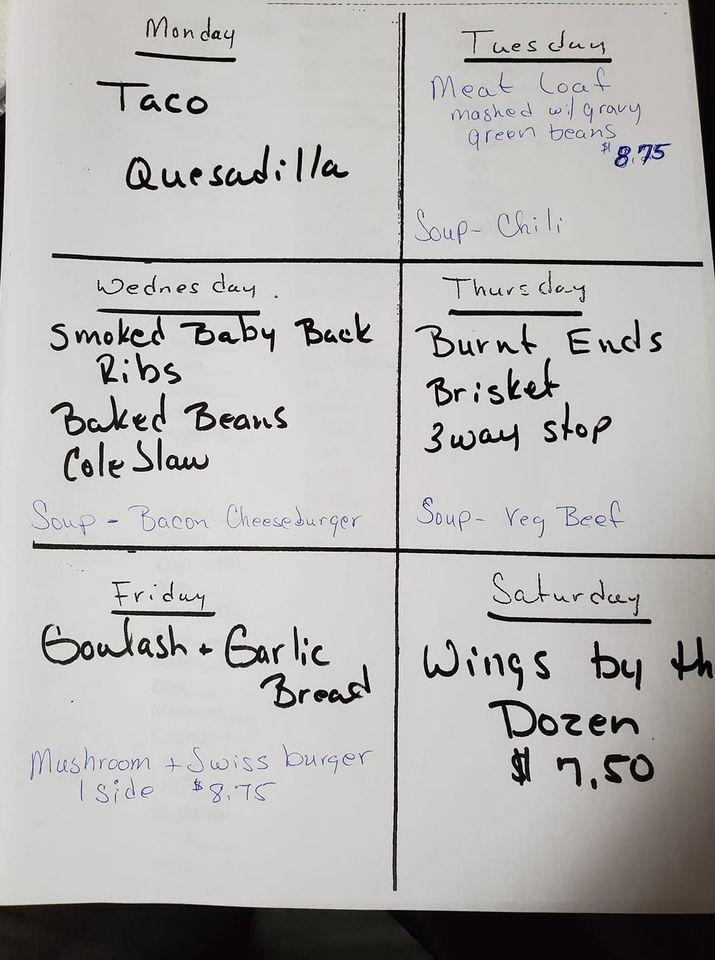 Monday
Taco
Quesadilla
Tuesday
Meat Loaf
mashed w/ gravy
green beans
$8.75
Soup- Chili
Wednesday.
Smoked Baby Back
Ribs
Baked Beans
Cole Slaw
Soup - Bacon Cheeseburger
Thursday
Burnt Ends
Brisket
3way stop
Soup- Veg Beef
Friday
Goulash + Garlic
Bread
Mushroom + Swiss burger
1 Side $8.75
Saturday
Wings by th
Dozen
$7.50